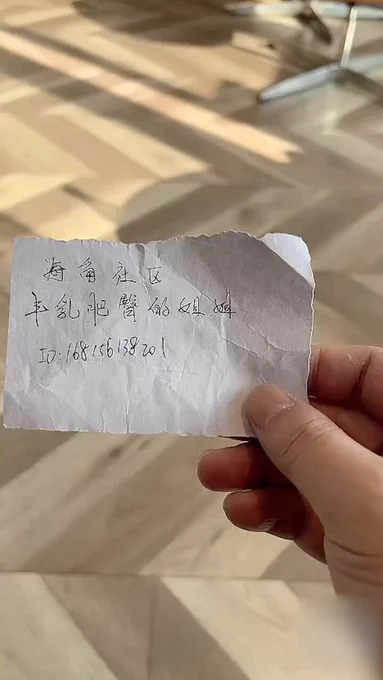 海角社区
丰乳肥臀的姐姐
ID:168156138201